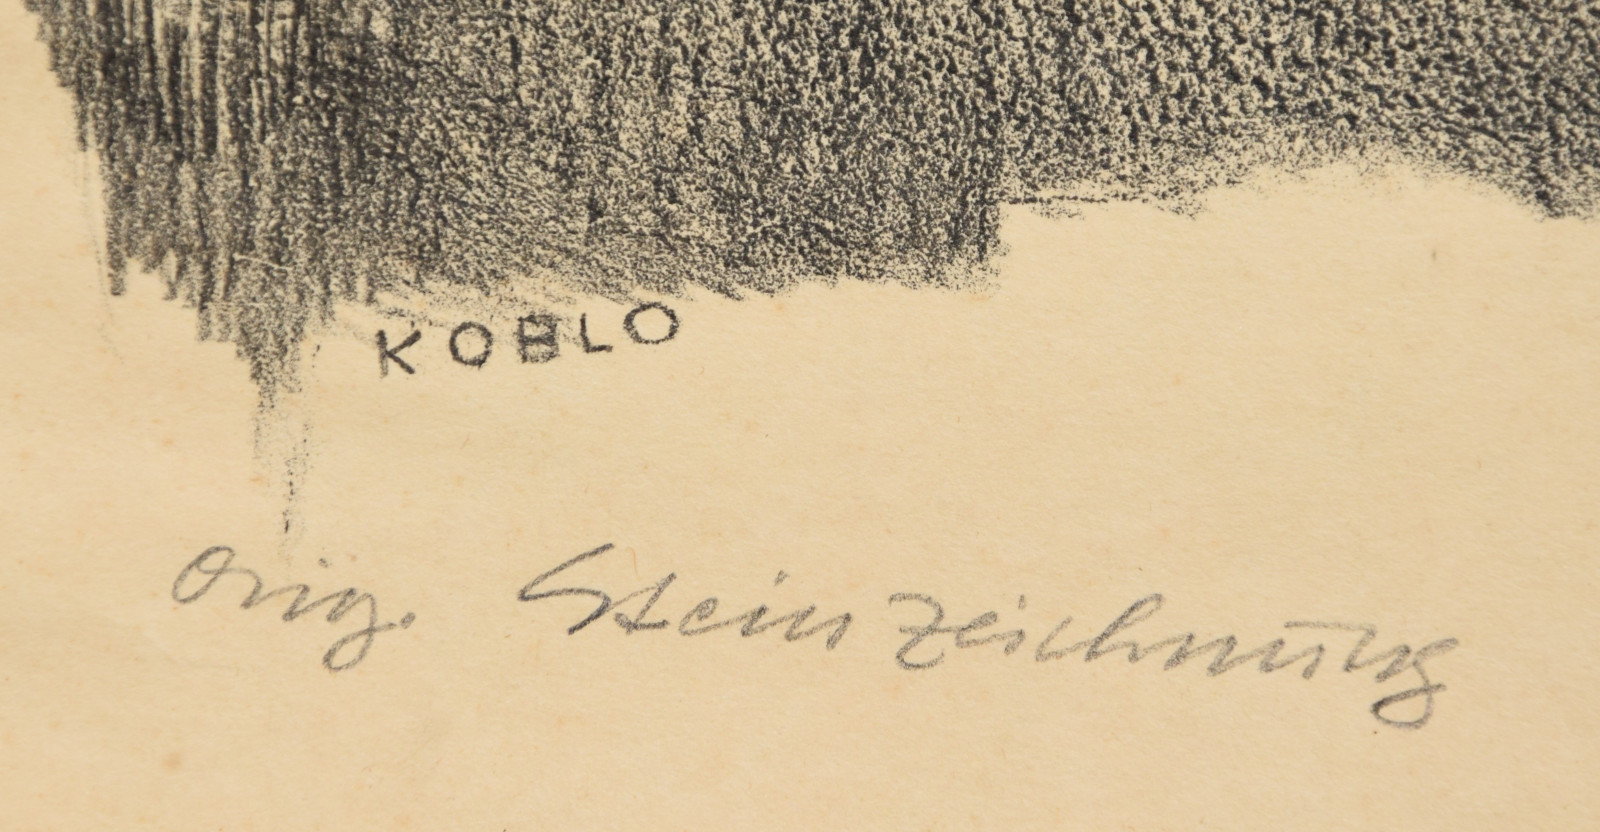 KOBLO
Orig. Steinzeichnung